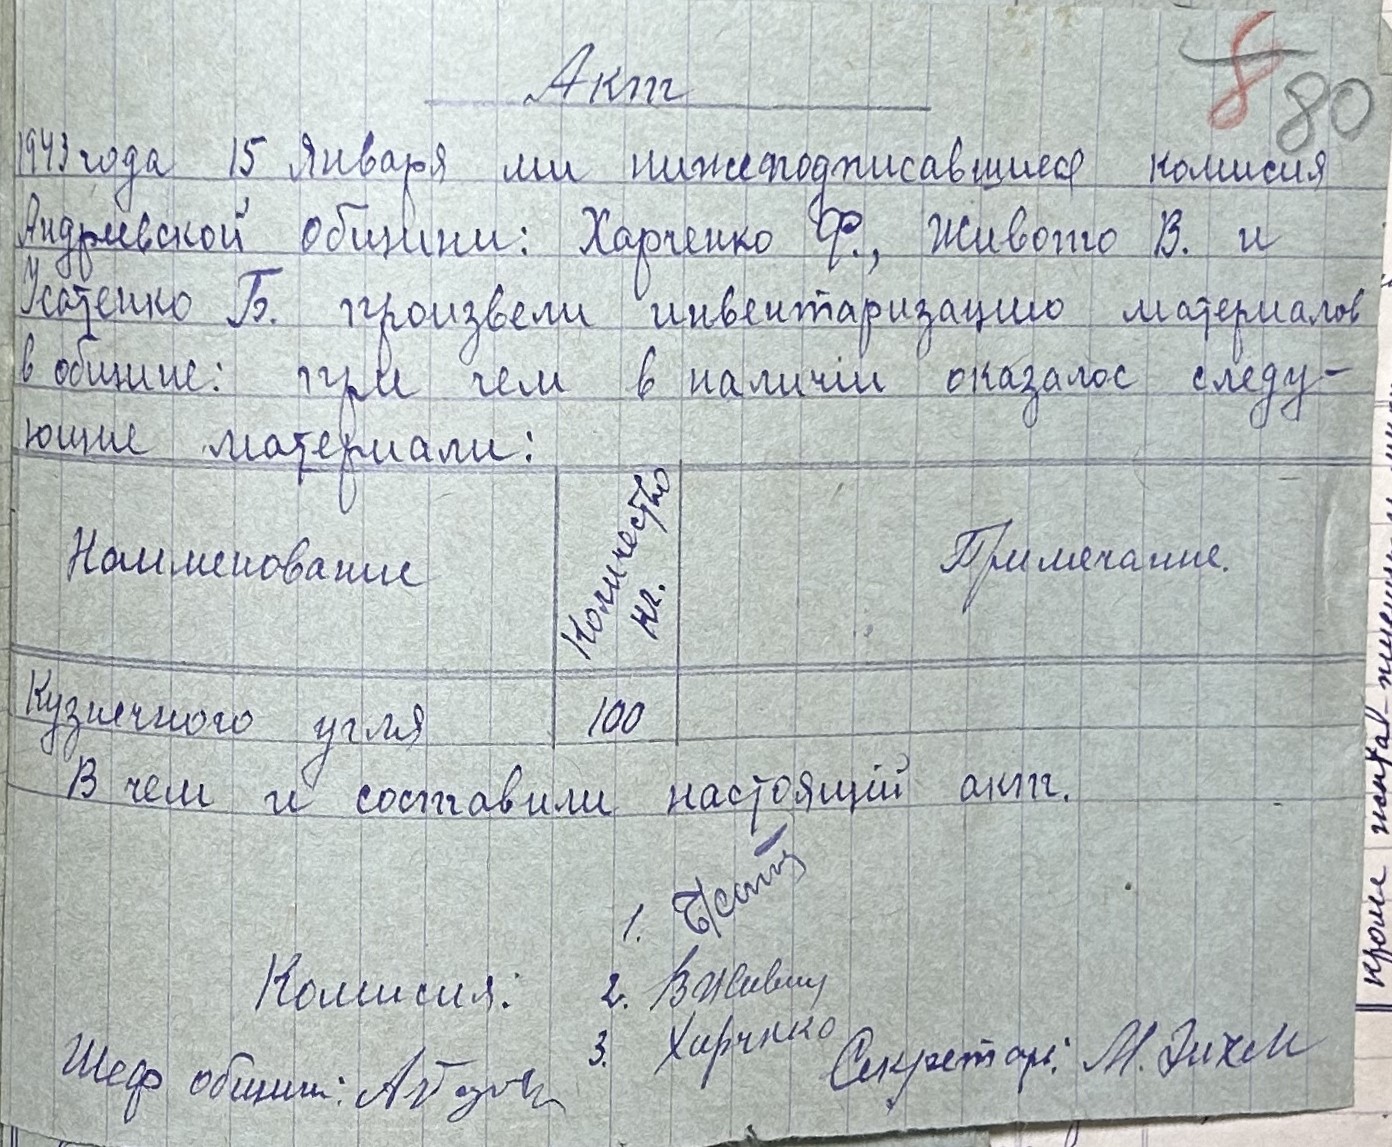 8
80
Акт
1943 года 15 Января ми нижеподписавшиеся комисия
Андриевской общини: Харченко Ф., Живото В. и
Усатенко Б. произвели инвентаризацию материалов
в общине: при чем в наличіи оказалос следу-
ющие материали:
Наименование
Количество
кг.
Примечание.
Кузнечного угля
100
В чем и составили настоящій акт.
1.
Комисия:
2. ВЖивот
3. Харченко
Шеф общини:
Секретарь: М.
кроме